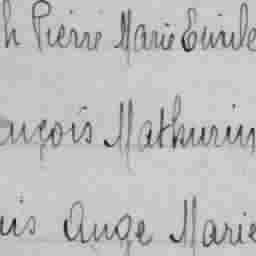 h Pierre Marie Emile
ançois Mathurin
uis Ange Marie